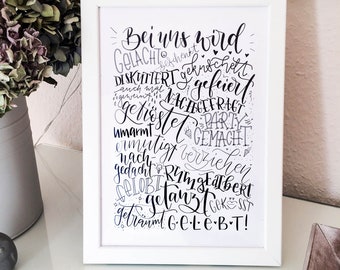 Bei uns wird
GELACHT geschnarcht
DISKUTIERT gekuschelt
auch mal geweint gefeiert
NACHGEFRAGT
getröstet PARTY
umarmt GEMACHT
ermutigt verziehen
nach gedacht RUMGEALBERT
GELOBT getanzt
geträumt GEKÜSST
G·E·L·E·B·T!